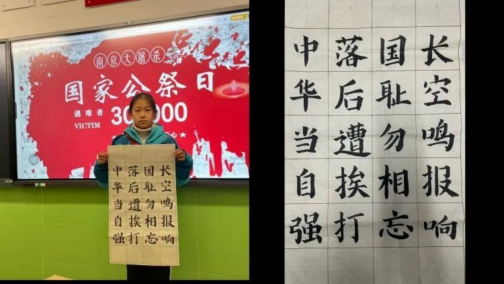 南京大屠杀
国家公祭日
遇难者
VICTIM
长空鸣报响
国耻勿相忘
落后遭挨打
中华当自强
长空鸣报响
国耻勿相忘
落后遭挨打
中华当自强